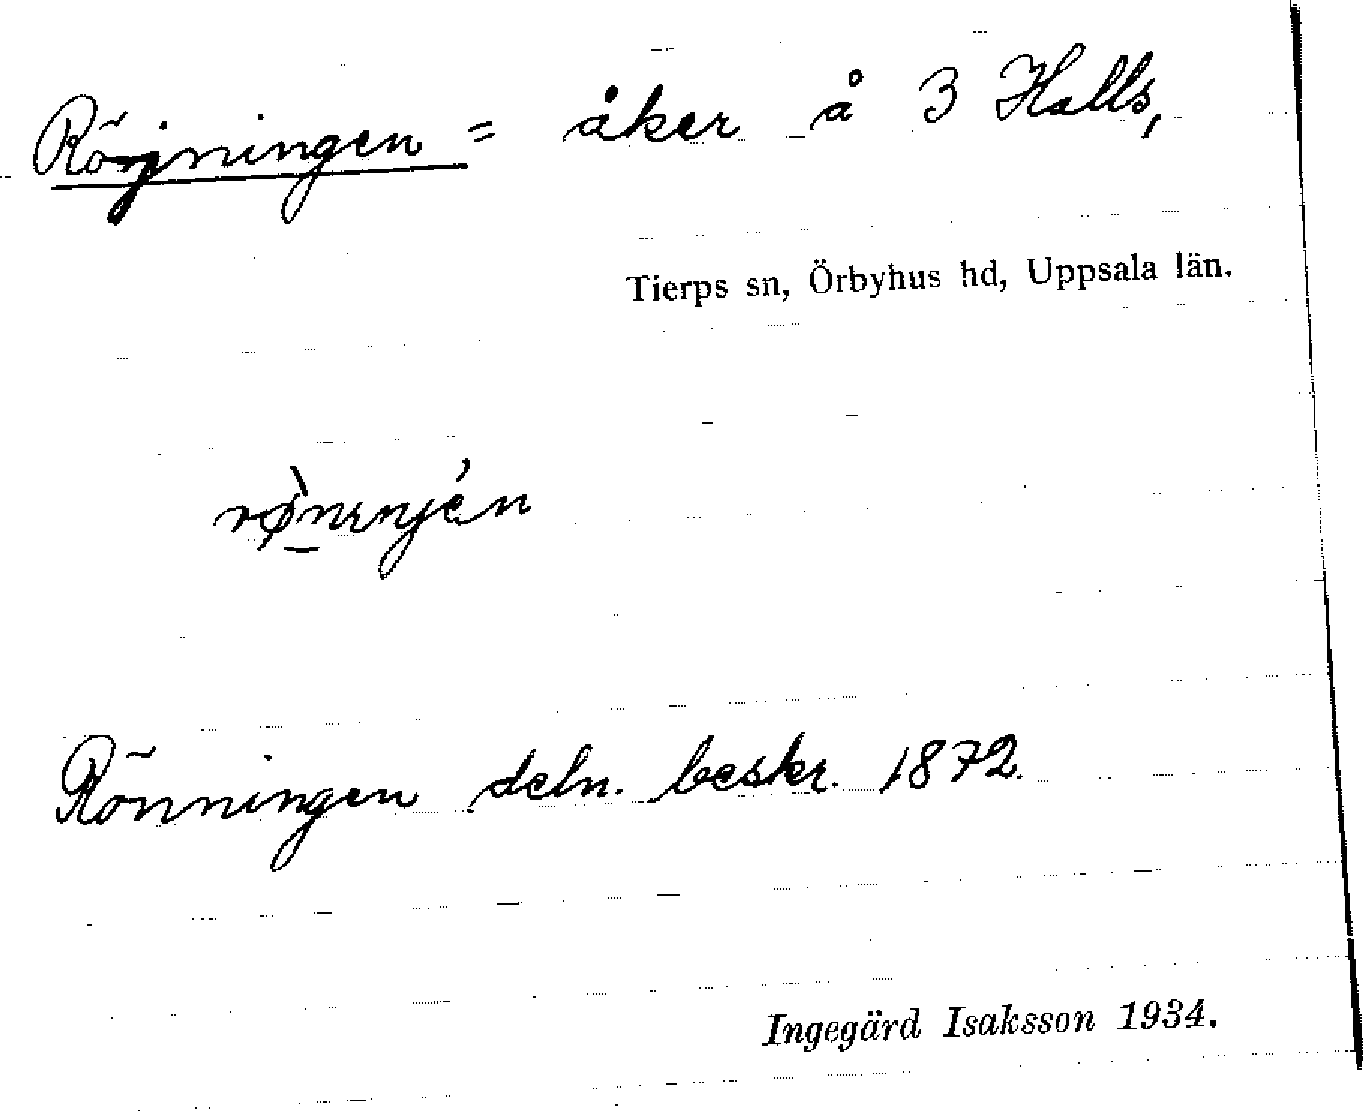 Röjningen = åker å 3 Halls,
Tierps sn, Örbyhus hd, Uppsala län.
Rönningen deln. beskr. 1872.
Ingegärd Isaksson 1934.